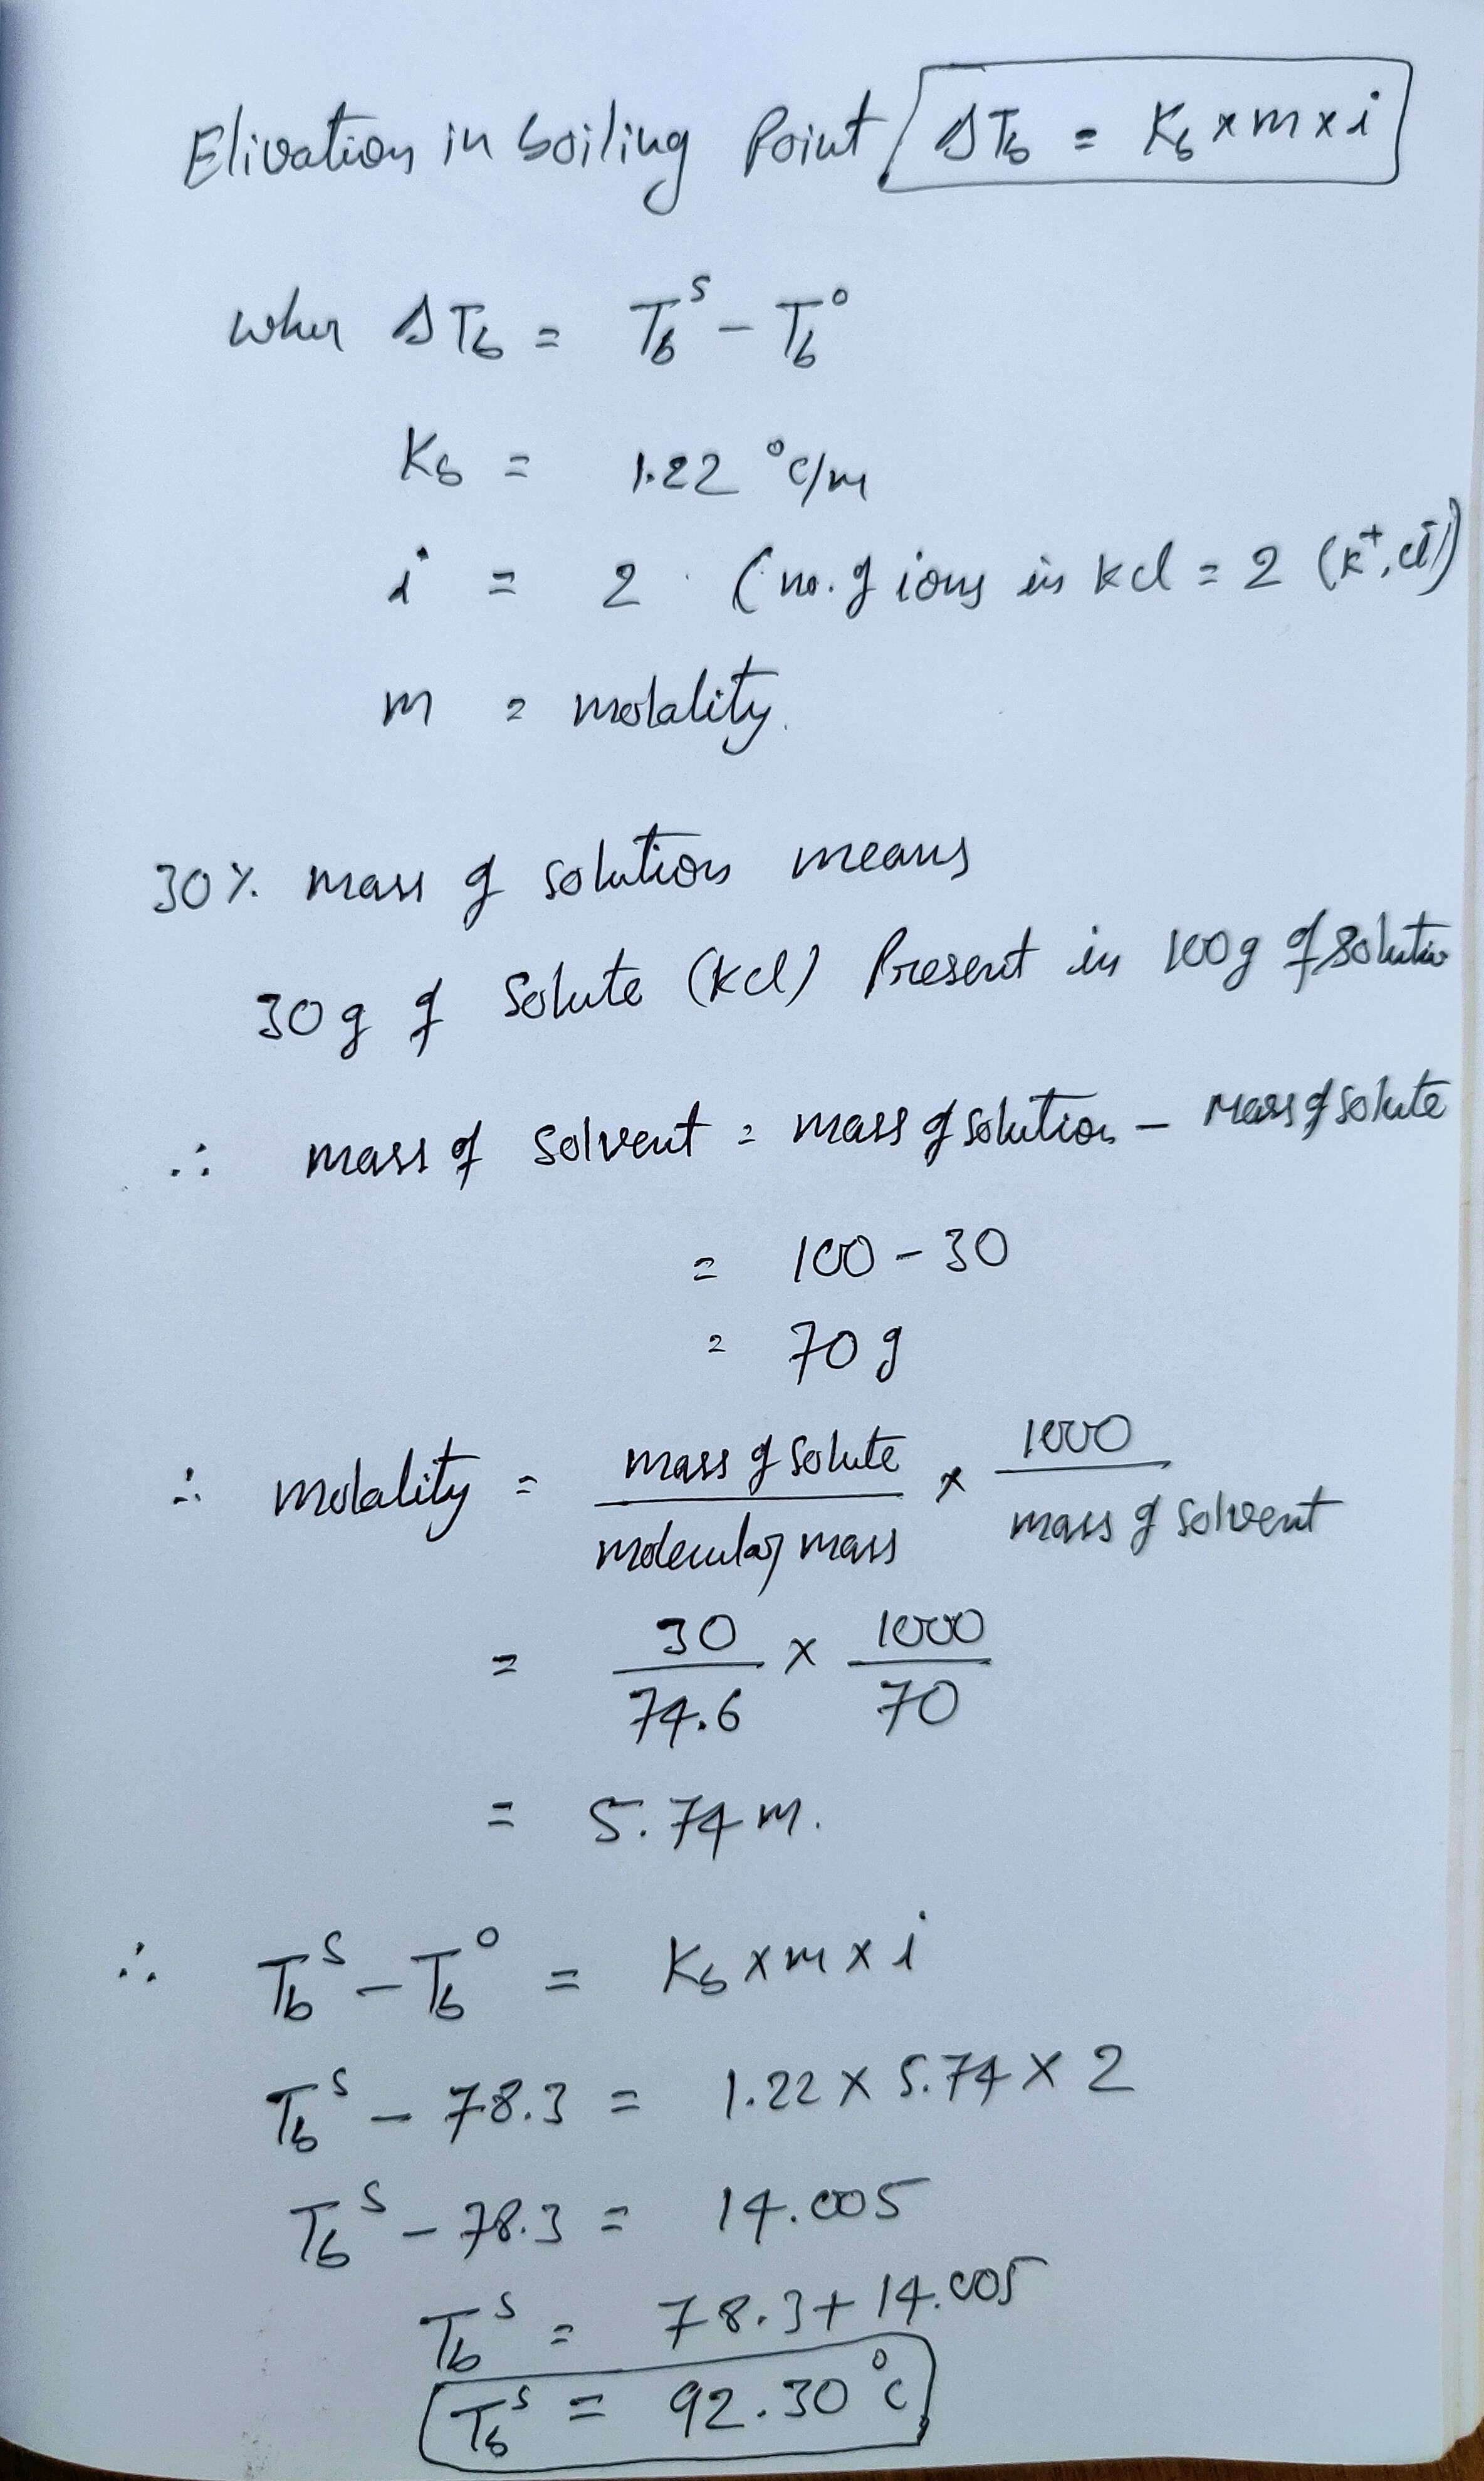 Elivation in boiling Point, ΔTb = Kb × m × i
wher ΔTb = Tb^s - Tb^o
Kb = 1.22 °C/m
i = 2 (no. of ions in kcl = 2 (K⁺, Cl⁻)
m = molality.
30% mass of solution means
30g of Solute (kcl) Present in 100g of solutio
∴ mass of solvent = mass of solution - Mass of solute
= 100 - 30
= 70g
∴ molality = mass of solute / molecular mass × 1000 / mass of solvent
= 30 / 74.6 × 1000 / 70
= 5.74 m.
∴ Tb^s - Tb^o = Kb × m × i
Tb^s - 78.3 = 1.22 × 5.74 × 2
Tb^s - 78.3 = 14.005
Tb^s = 78.3 + 14.005
Tb^s = 92.30 °C